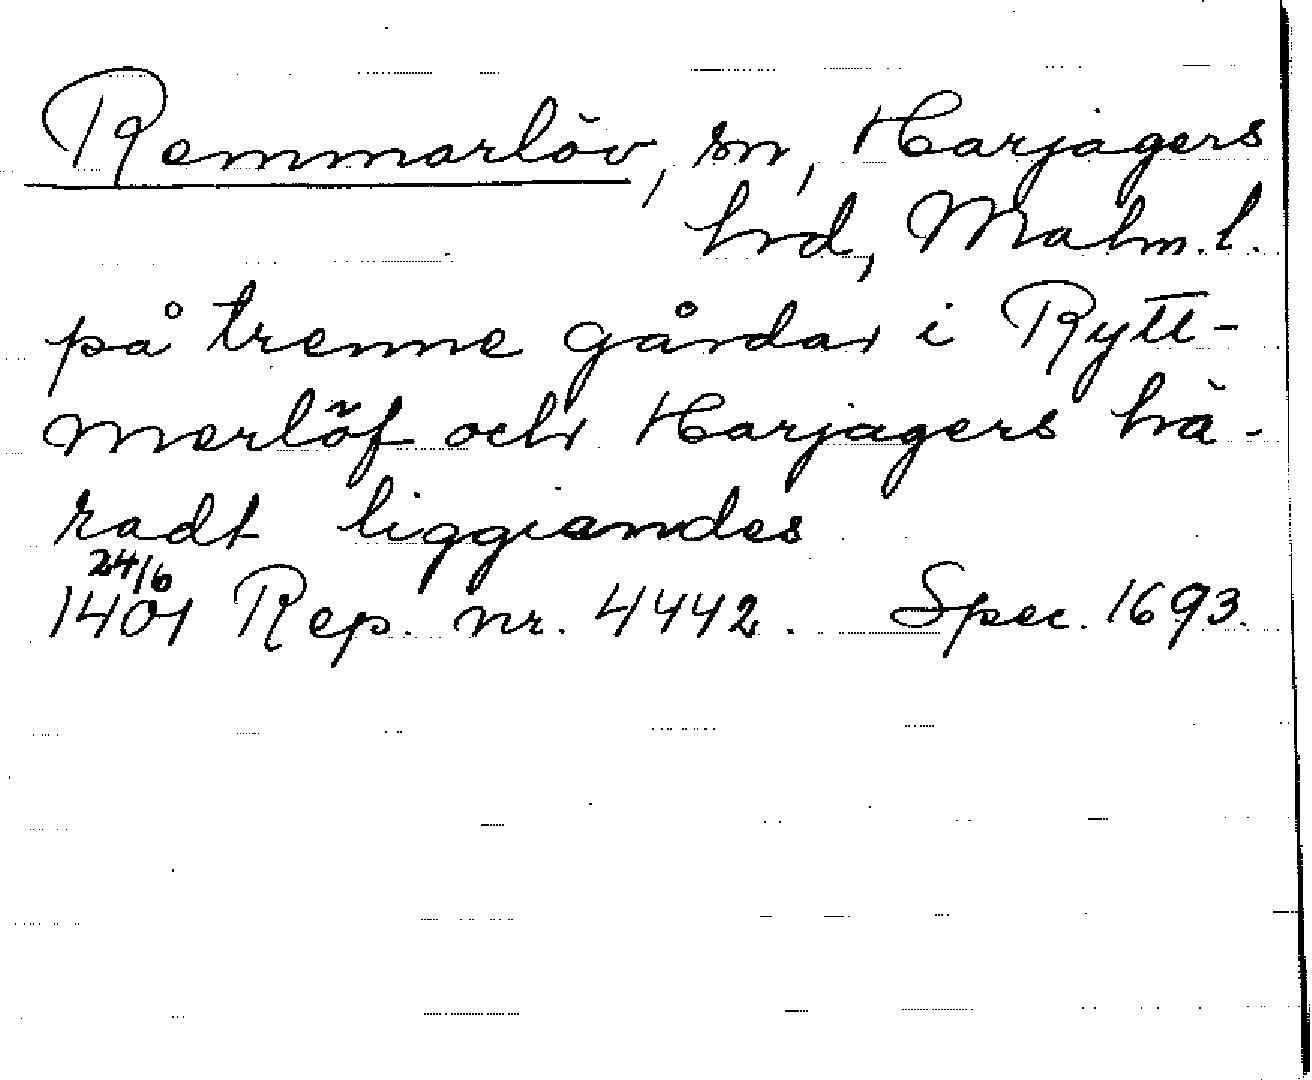 Remmarlöv, sn, Harjagers
hrd, Malm. l.
på trenne gårdar i Rytt-
merlöf och Harjagers hä-
radt liggiandes
24/6
1401 Rep. nr. 4442. Spec. 1693.